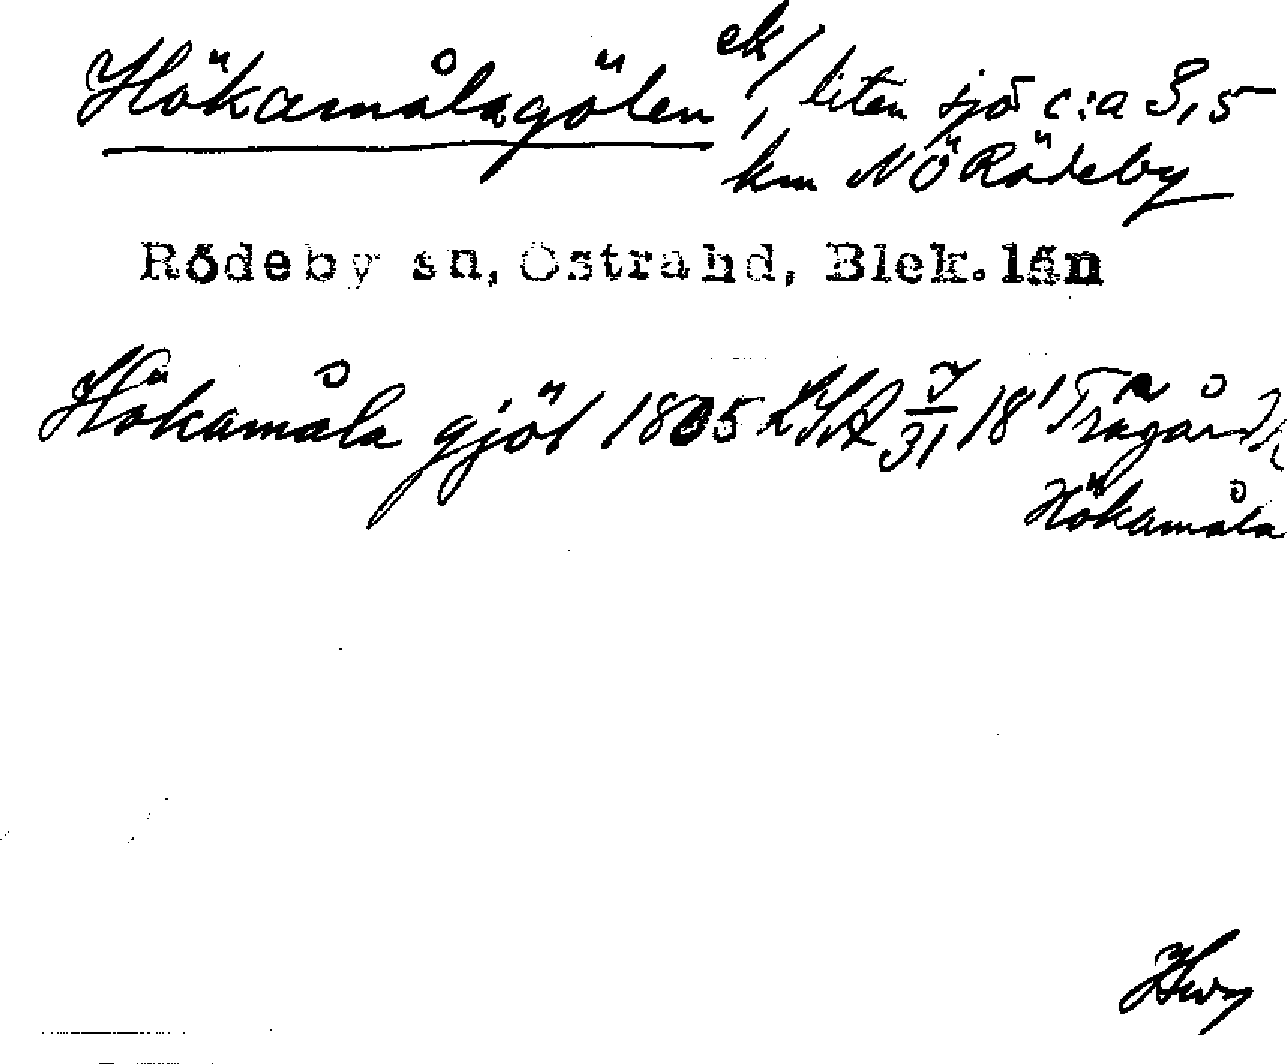 Hökamålagölen ek/, liten sjö c:a 3,5
km NÖ Rödeby
Rödeby sn, Östra hd, Blek. län
Hökamåla gjöl 1805 LSA 31 18' Trägård,
Hökamåla